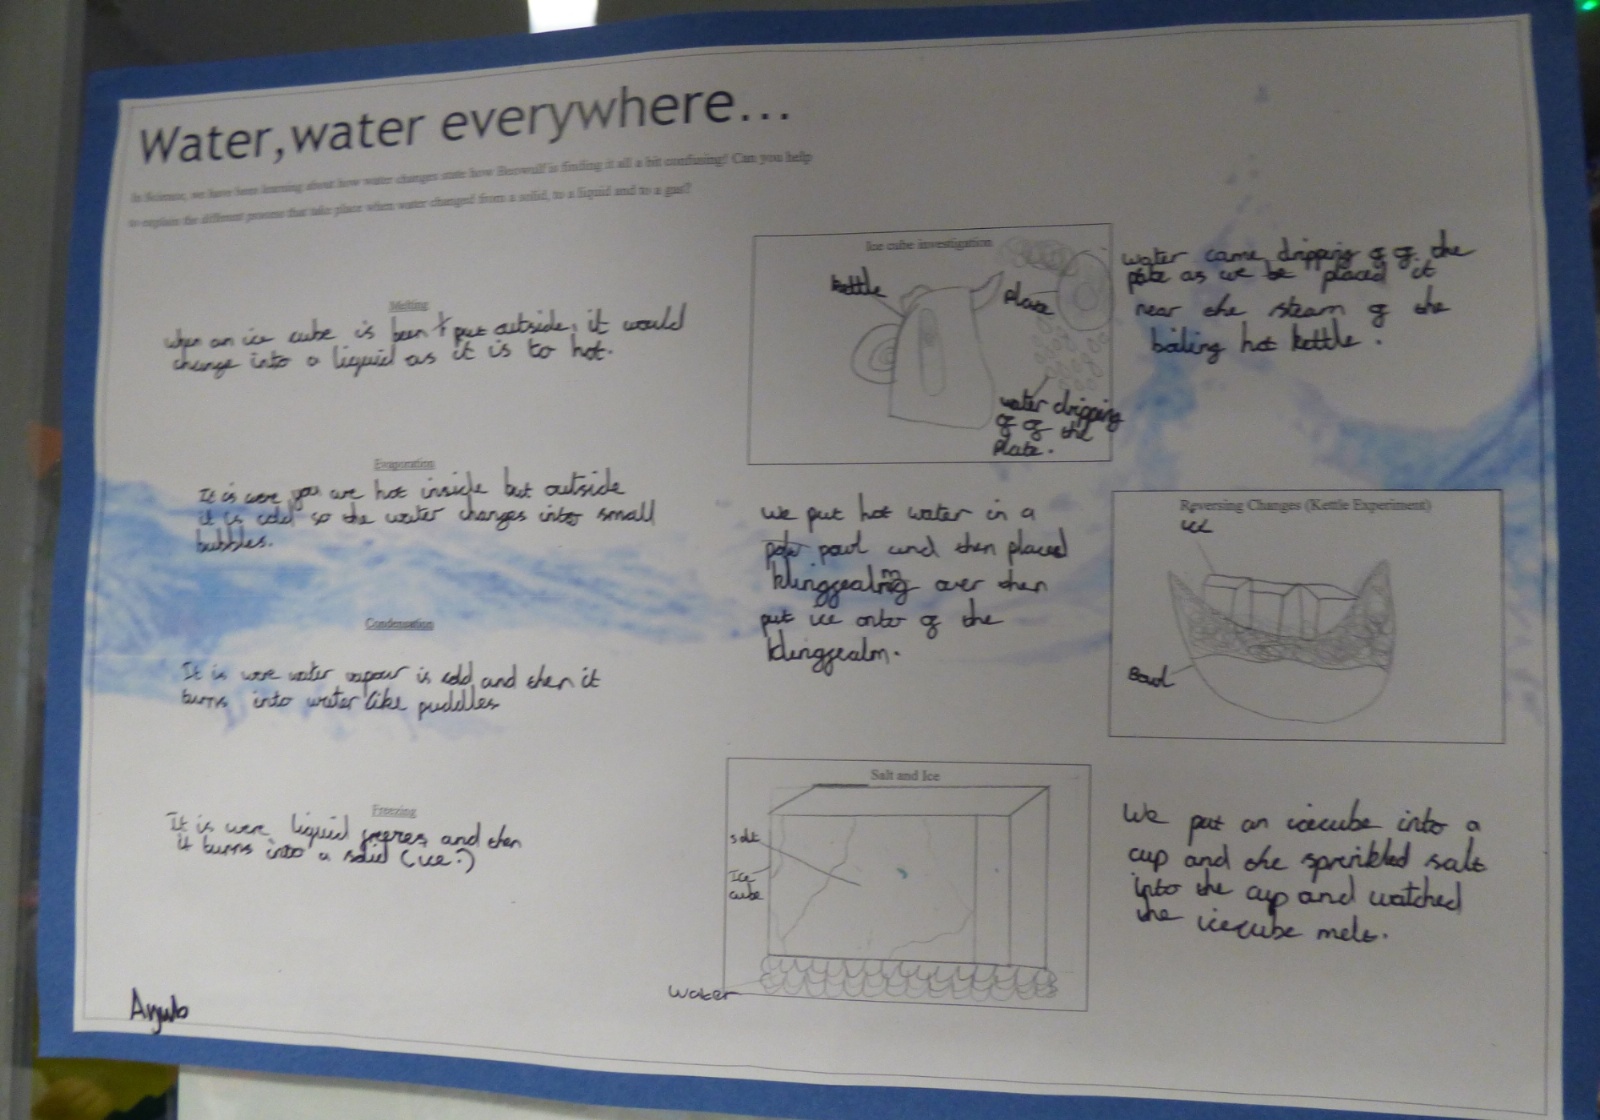 Water, water everywhere...
In Science, we have been learning about how water changes state how Beowulf is finding it all a bit confusing! Can you help
to explain the different process that take place when water changed from a solid, to a liquid and to a gas?
Melting
When an ice cube is been put outside, it would
change into a liquid as it is to hot.
Evaporation
It is were you are hot inside but outside
it is cold so the water changes into small
bubbles.
Condensation
It is were water vapour is cold and then it
turns into water like puddles
Freezing
It is were liquid freezes and then
it turns into a solid (ice:)
Ayub
Ice cube investigation
kettle
plate
water dripping
of of the
plate.
water came dripping of of the
plate as we be placed it
near the steam of the
boiling hot kettle.
We put hot water in a
powl and then placed
klingsealm over then
put ice onto of the
klingsealm.
Reversing Changes (Kettle Experiment)
ice
Bowl
Salt and Ice
salt
Ice
cube
Water
We put an icecube into a
cup and the sprinkled salt
into the cup and watched
the icecube melt.